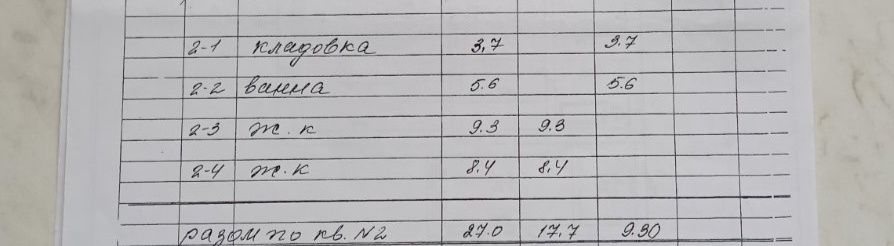 2-1 кладовка 3,7 3.7
2-2 ванна 5.6 5.6
2-3 ж.к 9.3 9.3
2-4 ж.к 8,4 8,4
разом по кв. N2 27.0 17,7 9.30